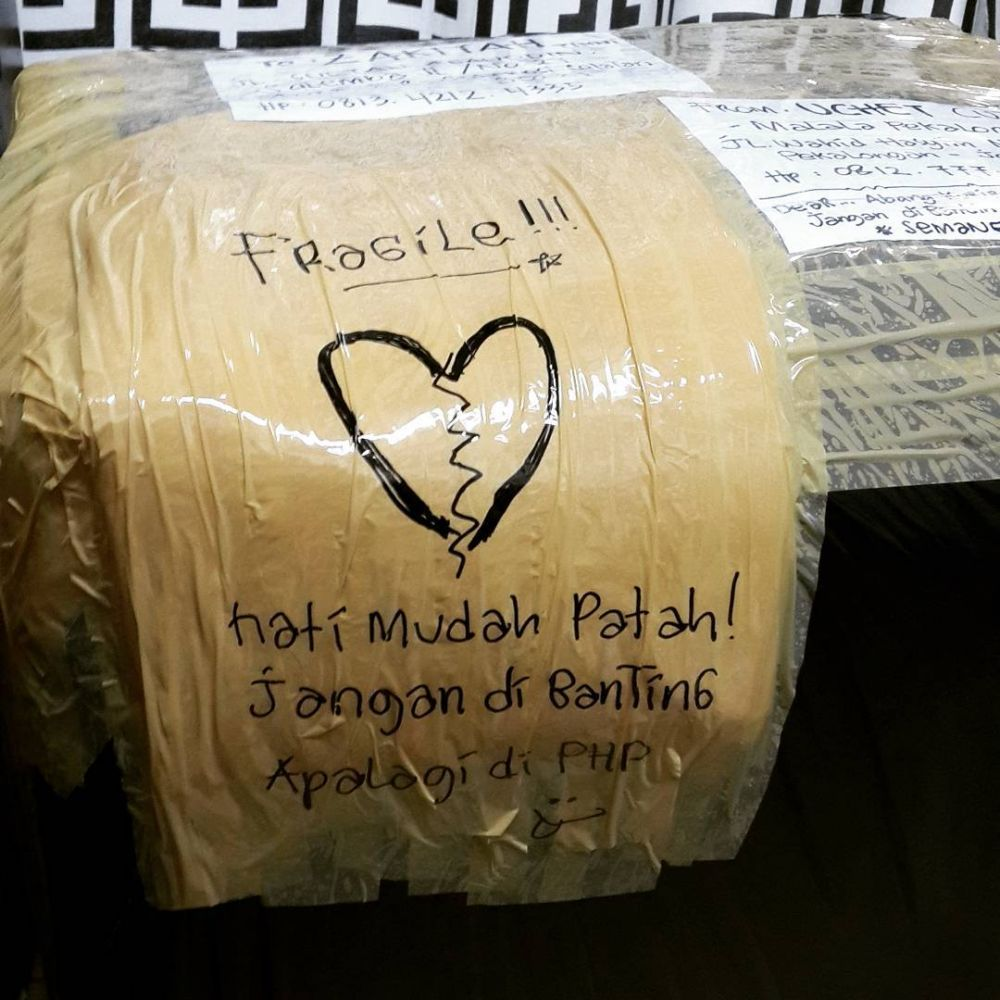 HP : 0813. 4212. 4335
FROM. UCHET
- Malala Pekalon
JL. Wahid Hasyim
Pekalongan -
HP : 0812. 777.
Dear... Abang
Jangan di
* SEMANG
Fragile!!!
hati mudah patah!
jangan di banting
Apalagi di PHP